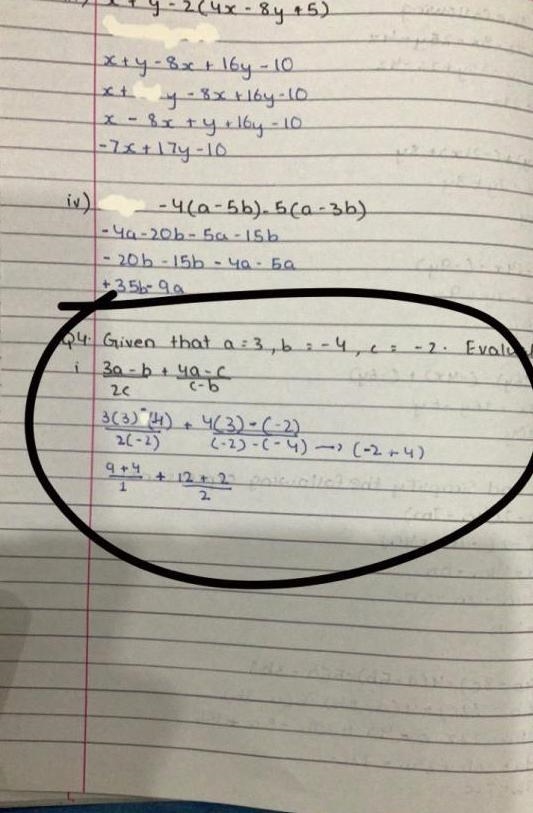 x + y - 2(4x - 8y + 5)
x + y - 8x + 16y - 10
x + y - 8x + 16y - 10
x - 8x + y + 16y - 10
-7x + 17y - 10
iv) -4(a - 5b) - 5(a - 3b)
-4a - 20b - 5a - 15b
- 20b - 15b - 4a - 5a
+35b - 9a
Q4. Given that a = 3, b = -4, c = -2.
i (3a - b)/2c + (4a - c)/(c - b)
(3(3) - (4))/2(-2) + (4(3) - (-2))/((-2) - (-4)) → (-2 + 4)
(9 + 4)/1 + (12 + 2)/2